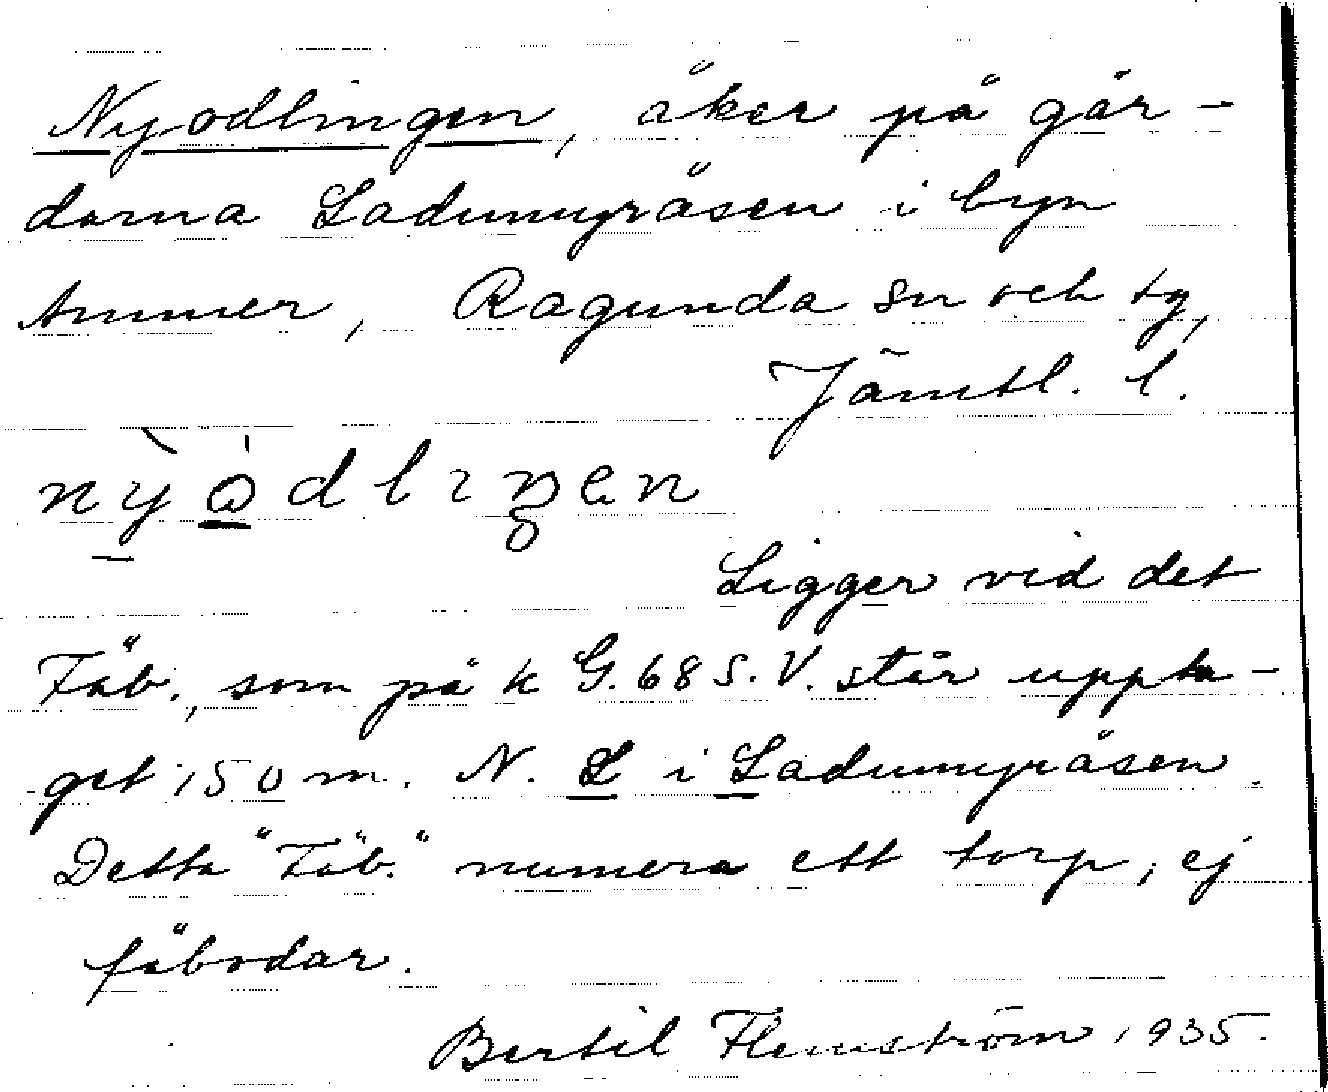 Nyodlingen, åker på går-
darna Ladumyråsen i byn
Ammer, Ragunda sn och tg,
Jämtl. l.
nỳọ̀dlıŋen
Ligger vid det
Fäb., som på k G. 68 S.V. står uppta-
get 150 m. N. L i Ladumyråsen.
Detta "Fäb." numera ett torp, ej
fäbodar.
Bertil Flemström 1935.